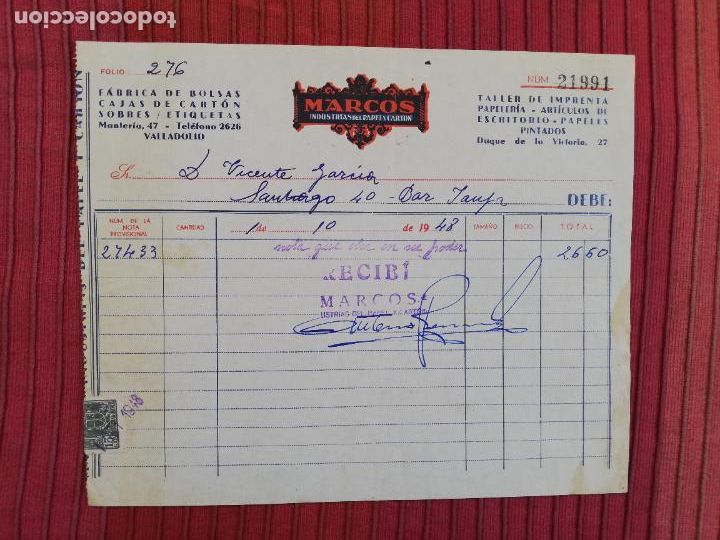 todocoleccion
FOLIO 276
NÚM. 21991
FÁBRICA DE BOLSAS
CAJAS DE CARTÓN
SOBRES / ETIQUETAS
Mantería, 47 - Teléfono 2626
VALLADOLID
MARCOS
INDUSTRIAS DEL PAPEL Y CARTON
TALLER DE IMPRENTA
PAPELERÍA - ARTÍCULOS DE
ESCRITORIO - PAPELES
PINTADOS
Duque de la Victoria, 27
Sr. D Vicente García
Santiago 40 - Bar
DEBE:
NÚM. DE LA NOTA PROVISIONAL CANTIDAD 1 de 10 de 1948 TAMAÑO PRECIO TOTAL
27433 nota que obra en su poder 2660
RECIBÍ
MARCOS
USTRIAS DEL PAPEL Y CARTON
1948
INDUSTRIAS DEL PAPEL Y CARTÓN